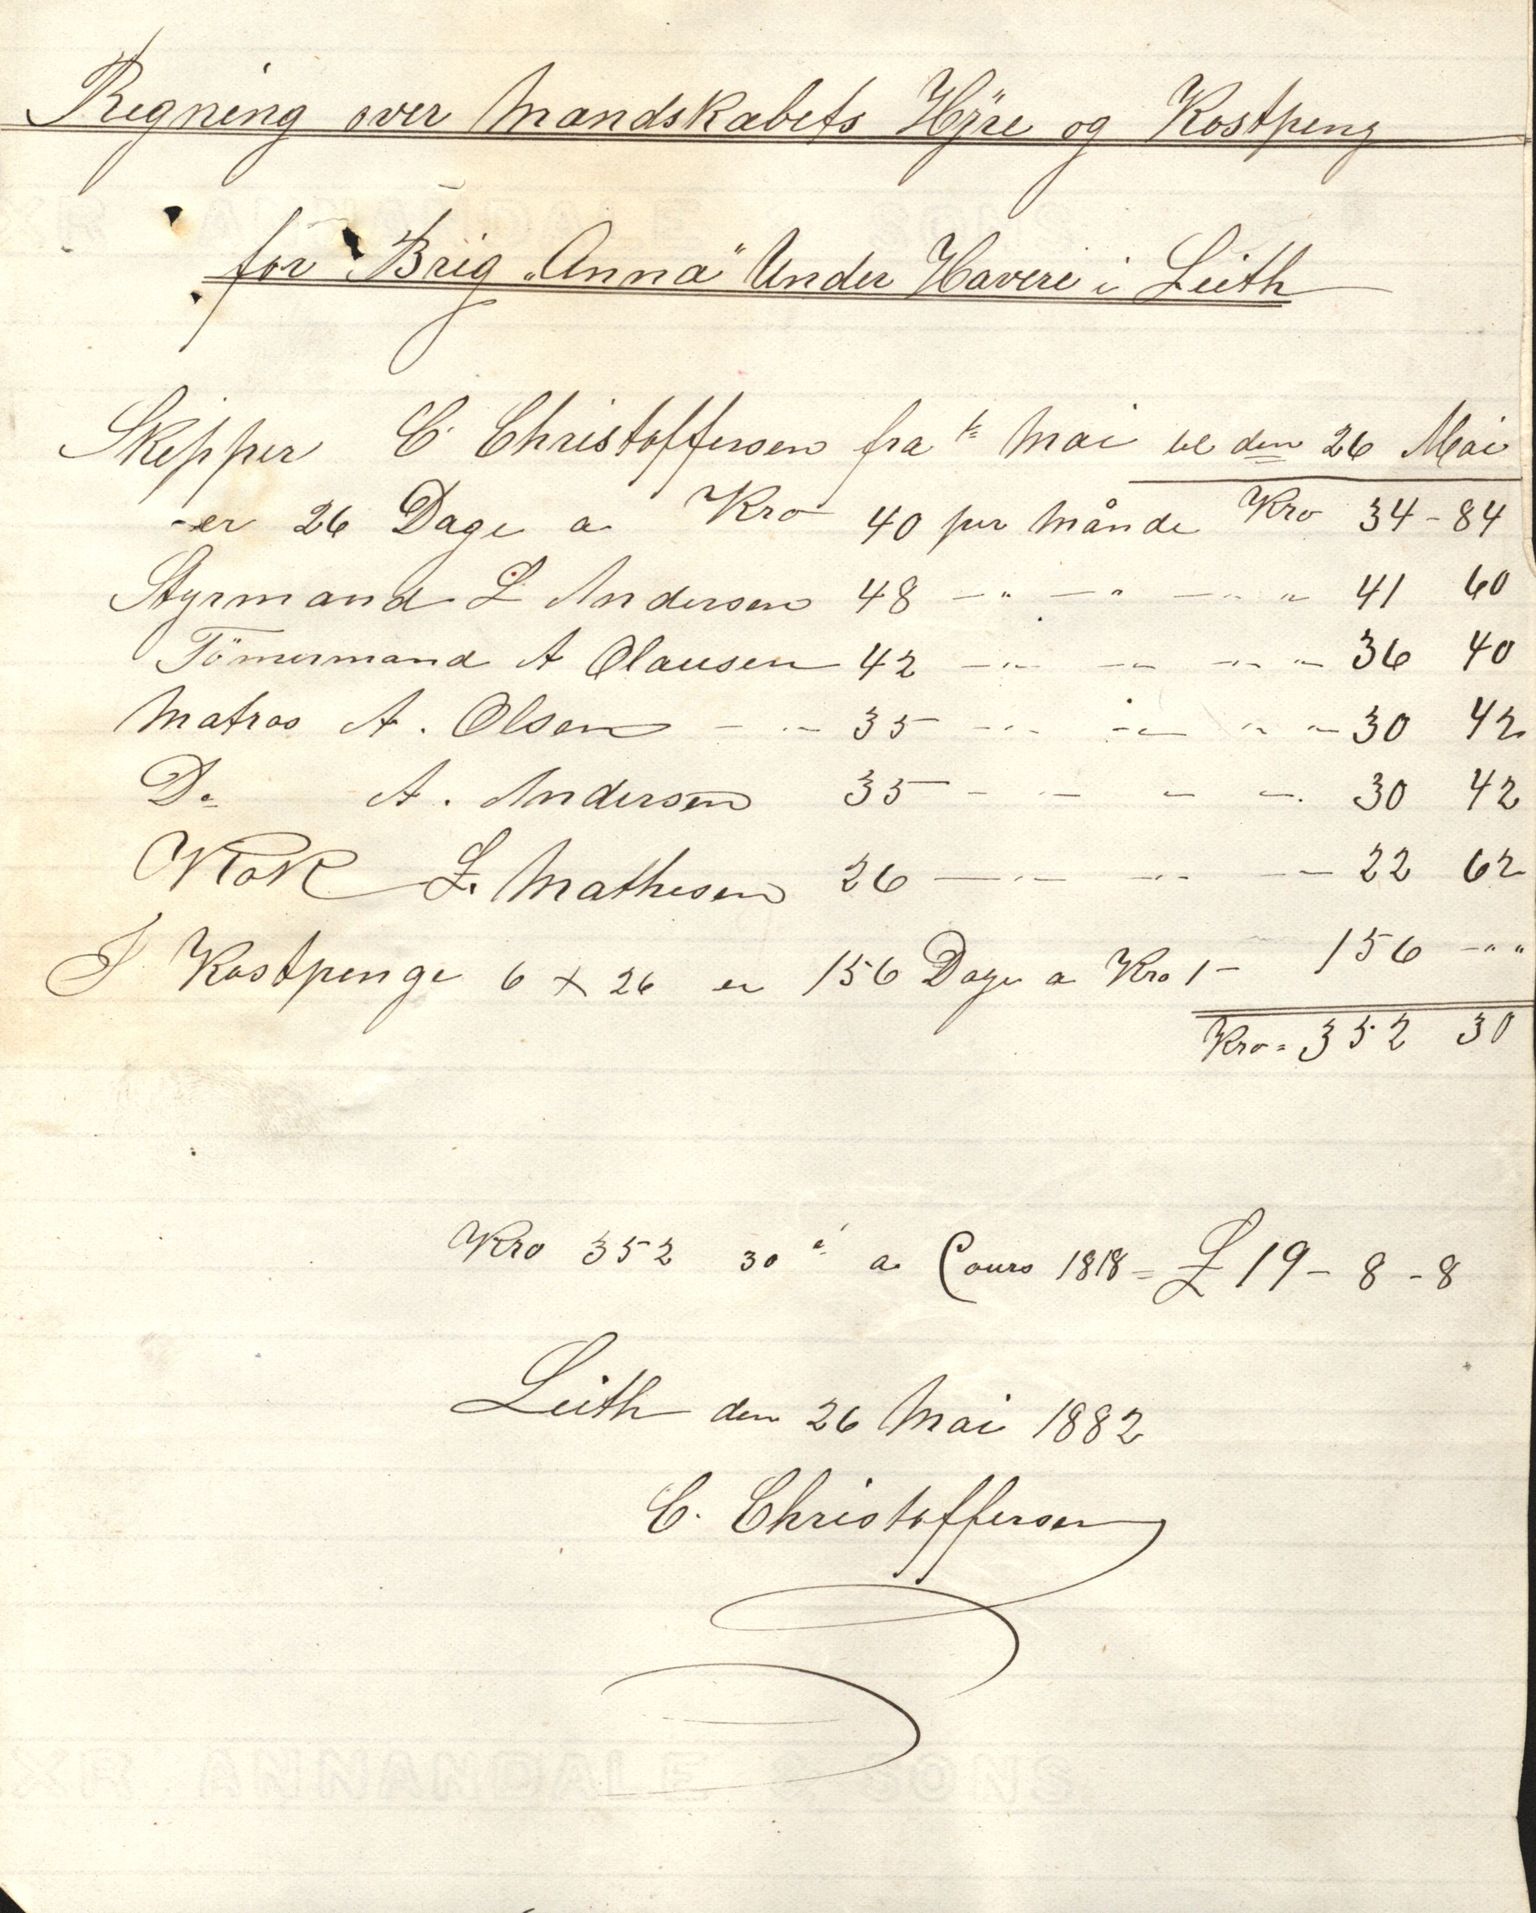 Regning over Mandskabets Hÿre og Kostpeng
for Brig "Anna" Under Havere i Leith
Skipper C. Christoffersen fra 1te Mai til den 26 Mai
er 26 Dage a Kro 40 per Månde Kro 34 - 84
Styrmand L Andersen 48 - " - " - " " 41 60
Tömermand A Olausen 42 - " - - " - " - " - 36 40
Matros A. Olsen - - " - 35 - " - - " - " - " - 30 42
Do A. Andersen 35 - - - - - 30 42
Kok L. Mathesen 26 - " - - " - - " - 22 62
I Kostpenge 6 x 26 er 156 Dage a Kro 1 - 156 - " "
Kro = 352 30
Kro 352 30 a Cours 1818 = £ 19 - 8 - 8
Leith den 26 Mai 1882
C. Christoffersen
XR ANNANDALE & SONS